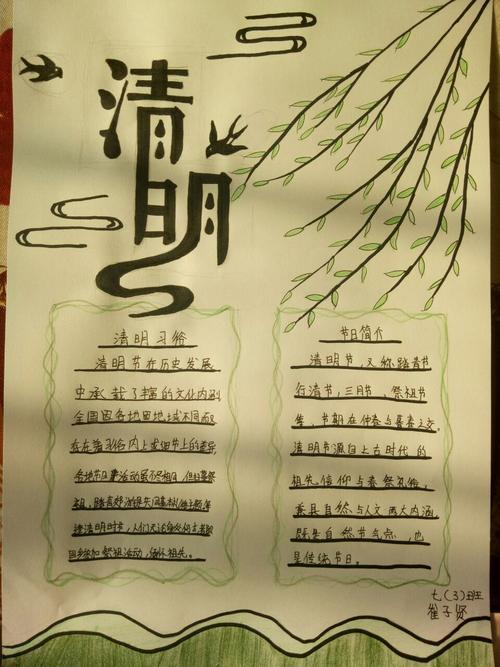 清明
清明习俗
清明节在历史发展
中承载了丰富的文化内涵
全国因各地因地域不同而
存在着习俗内上或细节上的差异
各地节日活动虽不尽相同,但扫墓祭
祖、踏青郊游是共同基本
清明时节,人们无论
参加祭祖活动,缅怀祖先。
节日简介
清明节,又称踏青节
行清节,三月节、祭祖节
等,节期在仲春与暮春之交。
清明节源自上古时代的
祖先信仰与春祭礼俗,
兼具自然与人文两大内涵,
既是自然节气点,也
是传统节日。
七(3)班
崔子贤